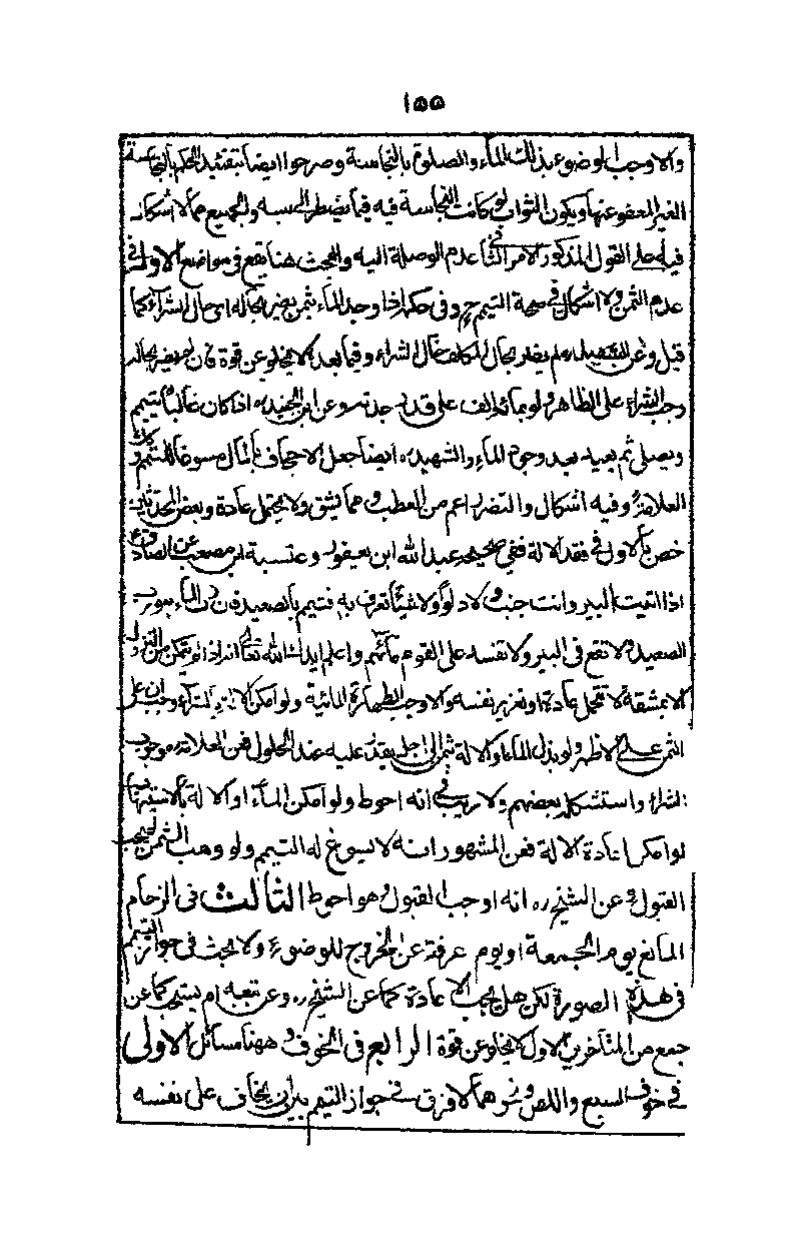 ١٥٥
والا وجب الوضوء بذلك الماء والصلوة بالنجاسة وصرحوا ايضا بتقييد الحكم بالنجاسة
الغير المعفو عنها ويكون الثواب لو كانت النجاسة فيه فيما يضطر الى لبسه والجميع مما لا اشكال
فيه على القول المذكور الامر الثانى عدم الوصلة اليه والبحث هنا يقع فى مواضع الاول فى
عدم الثمن ولا اشكال فى صحة التيمم ح وفى حكمه اذا وجد الماء بثمن يضر بحاله اى حال الشراء كما
قيل وعن ما لم يضر بحال المكلف حال الشراء وفيما بعد لا يخلو عن قوة فان لم يضر بحاله
وجب الشراء على الظاهر ولو بمائة الف على قدر جدته وعن ابن الجنيد ره اذا كان غالبا يتيمم
ويصلى ثم يعيد بعد وجوم الماء والشهيد ره ايضا جعل الاجحاف بالمال مسوغا للتيمم وكك
العلامة ره وفيه اشكال والتضرر اعم من العطب و مما يشق ولا يحتمل عادة وبعض المحدثين
خص بالاول فى فقد الالة ففى صحيحه عبد الله ابن يعفور وعنبسة ابن مصعب عن الصادق ع
اذا اتيت البير وانت جنب ولا دلوا ولا شيئا تغرف به فتيمم بالصعيد فان رب الماء هو رب
الصعيد ولا تقع فى البير ولا تفسد على القوم مائهم واعلم ايدك الله تعالى انه اذا لم يتمكن من النزول
الا بمشقة لا تتحمل عادة او تغرير نفسه والا وجب الطهارة المائية ولو امكن الالة بالشراء وجب ان على
الثمن على الاظهر ولو بذل الماء او الالة بثمن الى اجل يقدر عليه عند الحلول فعن العلامة ره وجوب
الشراء واستشكله بعضهم ولا ريب فى انه احوط ولو امكن الماء او الالة بالاستيهاب
لو امكن اعادة الالة فعن المشهور انه لا يسوغ له التيمم ولو وهب الثمن لم يجب
القبول وعن الشيخ ره انه اوجب القبول وهو احوط الثالث فى الزحام
المانع يوم الجمعة او يوم عرفة عن الخروج للوضوء ولا بحث فى جواز التيمم
فى هذه الصورة لكن هل يجب الاعادة كما عن الشيخ ره وعن تبعه ام يستحب كما عن
جمع من المتأخرين الاول لا يخلو عن قوة الرابع فى الخوف وههنا مسائل الاولى
فى خوف السبع واللص ونحوهما لا فرق فى جواز التيمم بين ان يخاف على نفسه